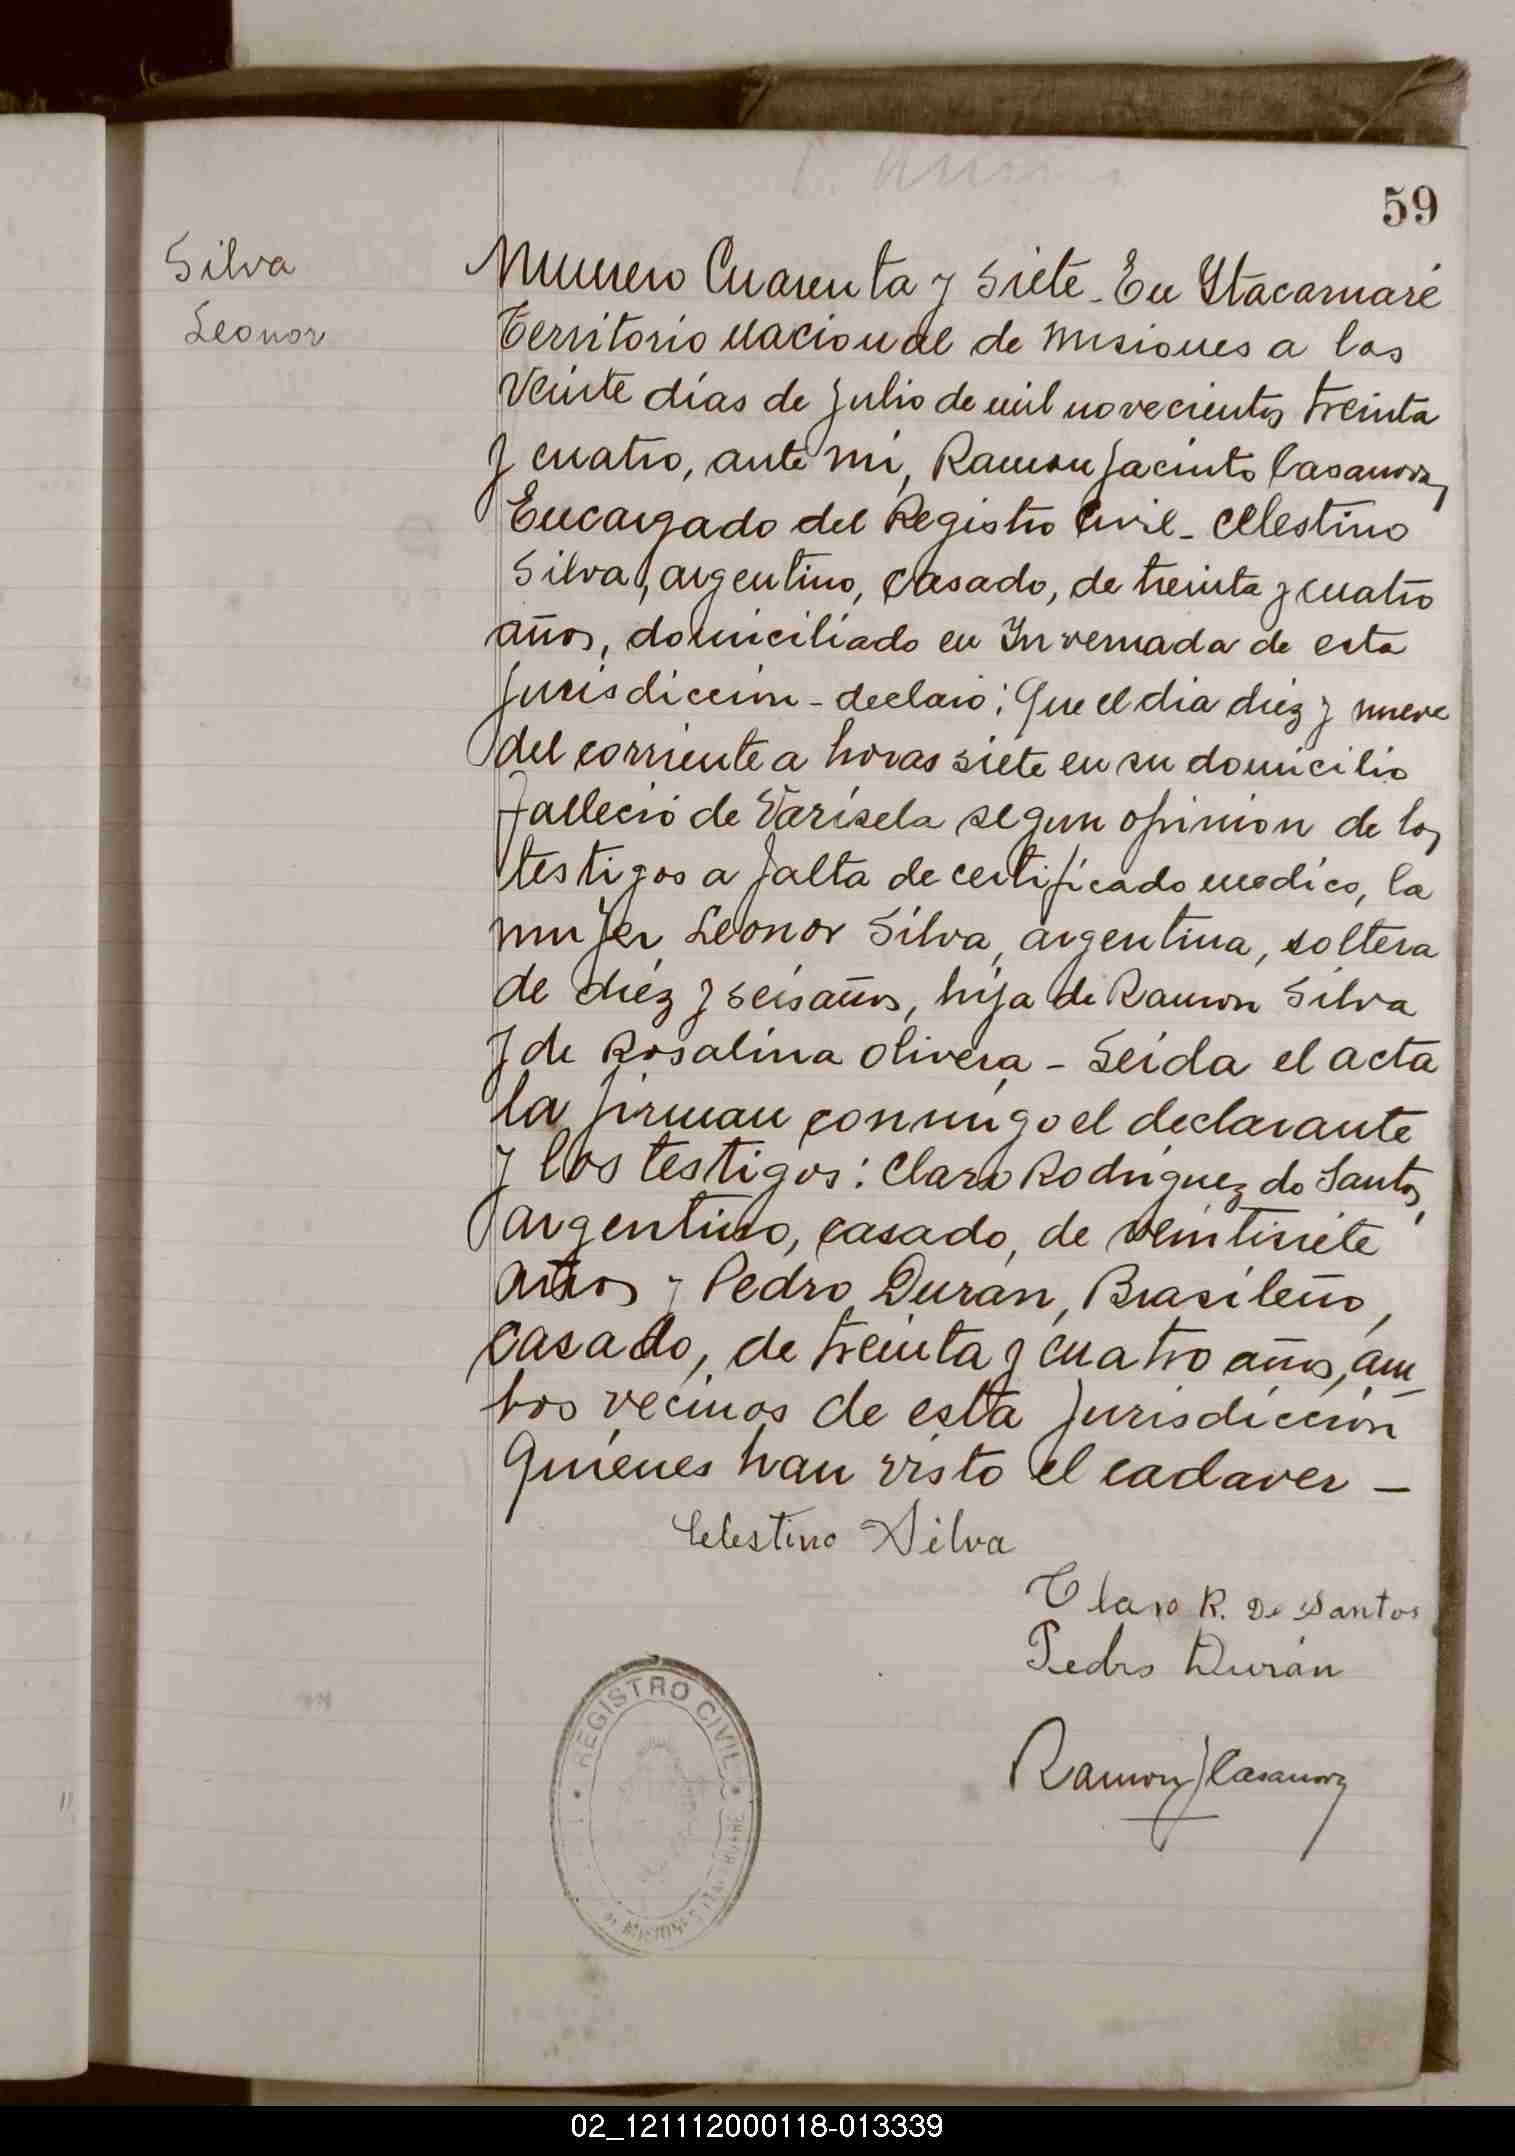 59
Silva
Leonor
Numero Cuarenta y Siete - En Itacaruaré
Territorio nacional de Misiones a los
veinte días de julio de mil novecientos treinta
y cuatro, ante mi, Ramon Jacinto Casanova,
Encargado del Registro Civil - Celestino
Silva, argentino, casado, de treinta y cuatro
años, domiciliado en Invernada de esta
jurisdiccion - declaró: Que el dia diez y nueve
del corriente a horas siete en su domicilio
falleció de Varisela segun opinion de los
testigos a falta de certificado medico, la
mujer Leonor Silva, argentina, soltera
de diéz y seis años, hija de Ramon Silva
y de Rosalina Olivera - Leida el acta
la firman conmigo el declarante
y los testigos: Claro Rodriguez do Santos,
argentino, casado, de veintisiete
años y Pedro Durán, Brasileño,
casado, de treinta y cuatro años, am_
bos vecinos de esta jurisdiccion
quienes han visto el cadaver -
Celestino Silva
Claro R. De Santos
Pedro Durán
Ramon J Casanova
REGISTRO CIVIL
MISIONES
02_121112000118-013339